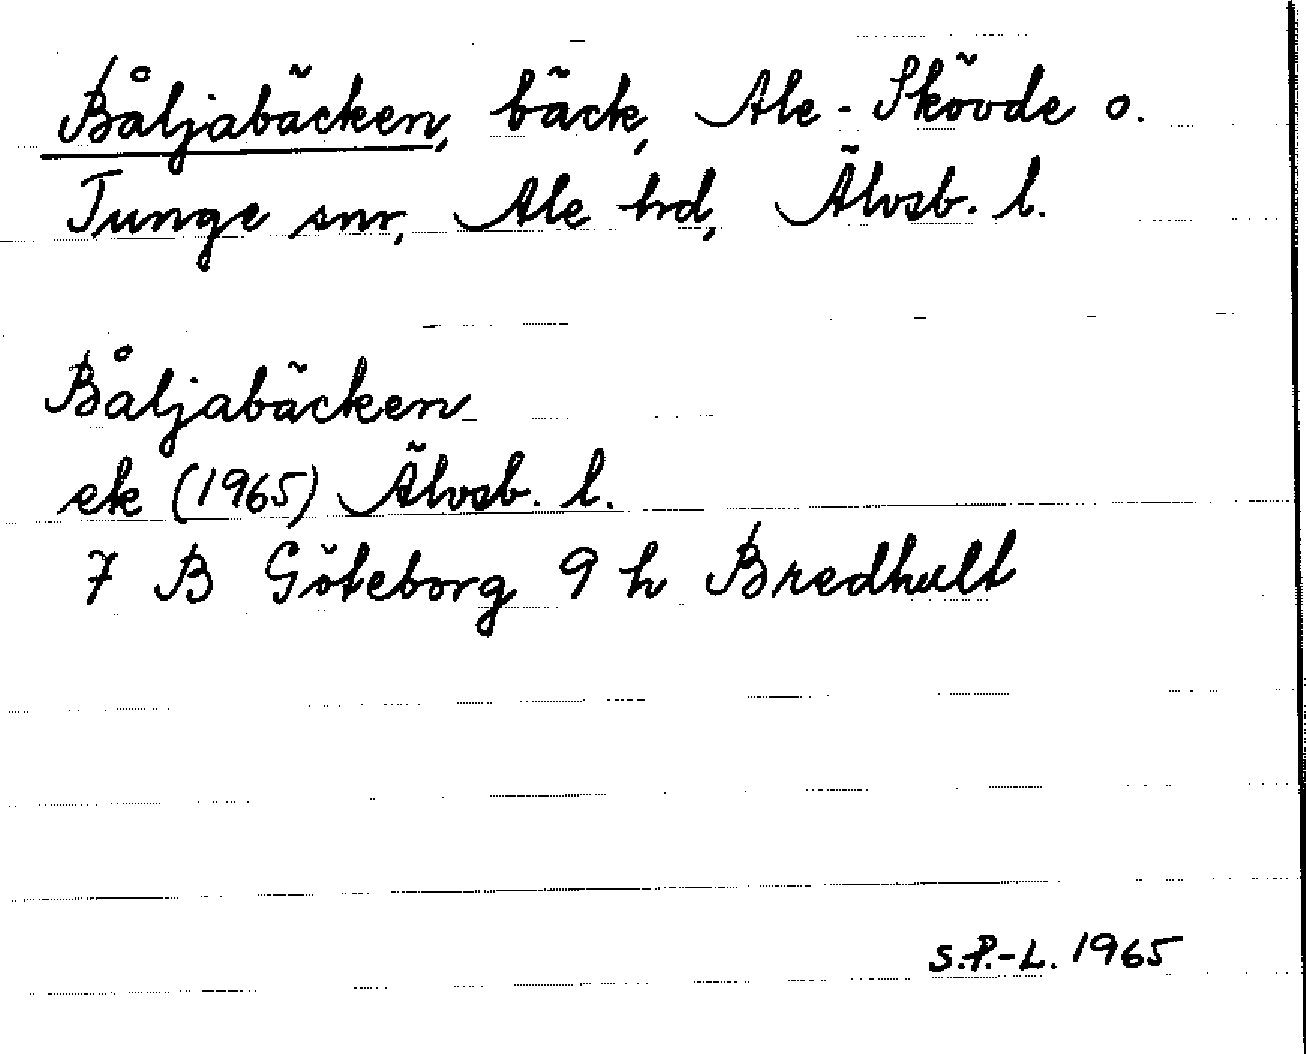 Båljabäcken, bäck, Ale-Skövde o.
Tunge snr, Ale hd, Älvsb. l.
Båljabäcken
ek (1965) Älvsb. l.
7 B Göteborg 9 h Bredhult
S.P.-L. 1965